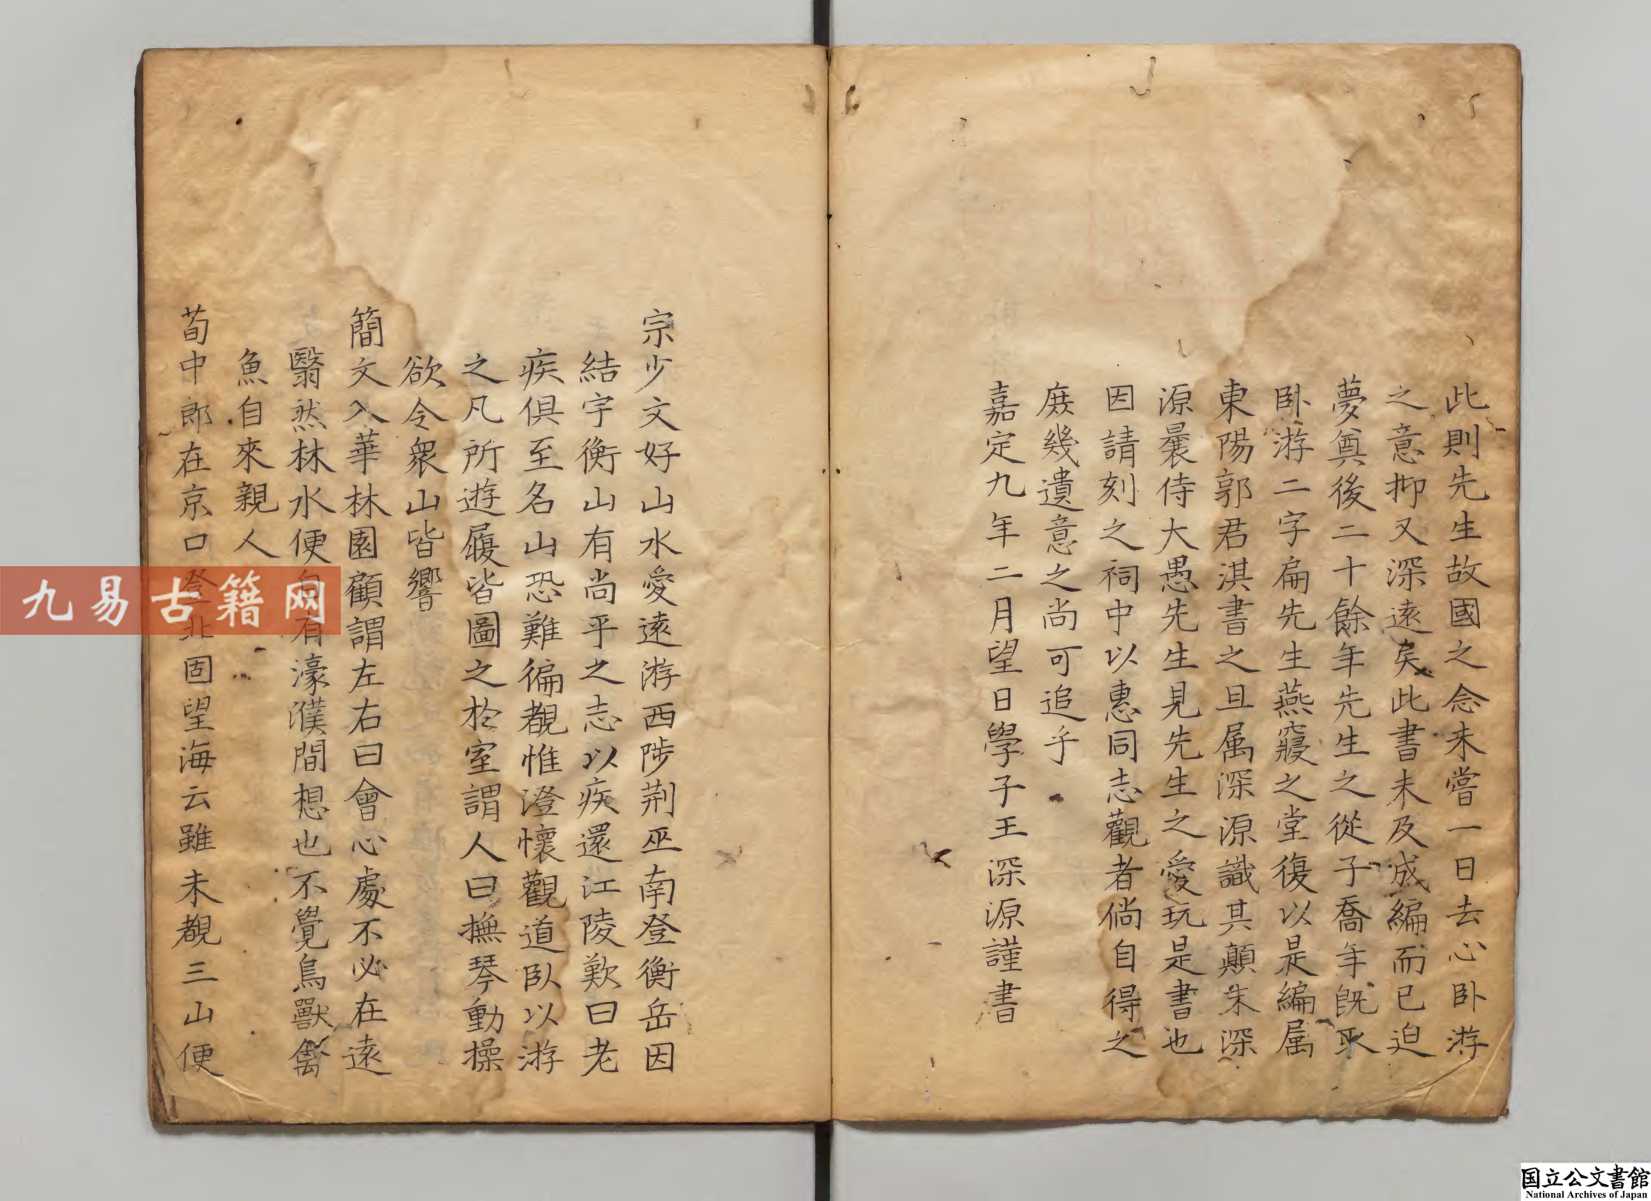 此則先生故國之念未嘗一日去心卧游
之意抑又深遠矣此書未及成編而已迫
夢奠後二十餘年先生之從子喬年既取
卧游二字扁先生燕寢之堂復以是編属
東陽郭君淇書之且属深源識其顛末深
源曩侍大愚先生見先生之愛玩是書也
因請刻之祠中以惠同志觀者倘自得之
庶幾遺意之尚可追乎
嘉定九年二月望日學子王深源謹書
宗少文好山水愛遠游西陟荆巫南登衡岳因
結宇衡山有尚平之志以疾還江陵歎曰老
疾俱至名山恐難徧覩惟澄懷觀道卧以游
之凡所遊履皆圖之於室謂人曰撫琴動操
欲令衆山皆響
簡文入華林園顧謂左右曰會心處不必在遠
翳然林水便自有濠濮間想也不覺鳥獸禽
魚自來親人
荀中郎在京口登北固望海云雖未覩三山便
九易古籍网
国立公文書館
National Archives of Japan